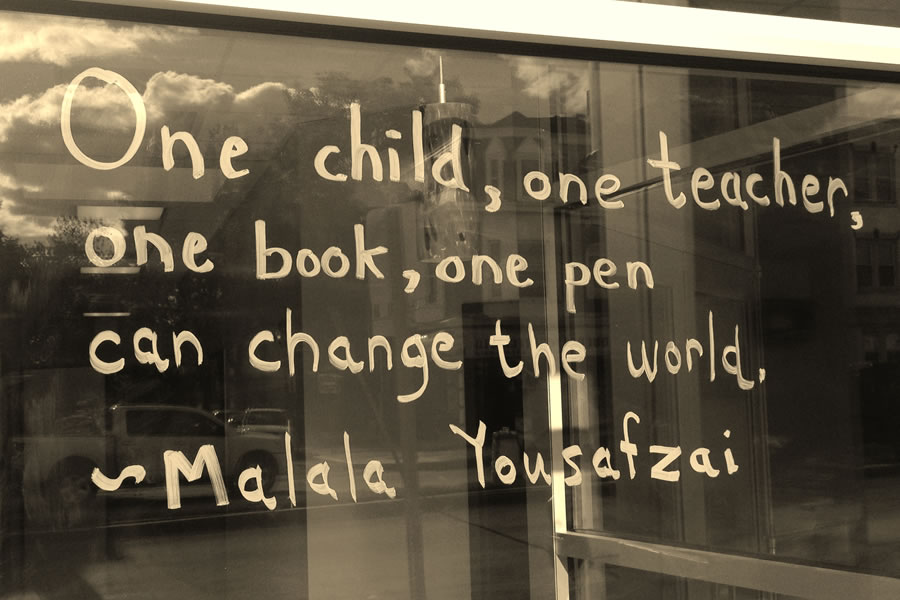 One child, one teacher,
one book, one pen
can change the world.
~Malala Yousafzai